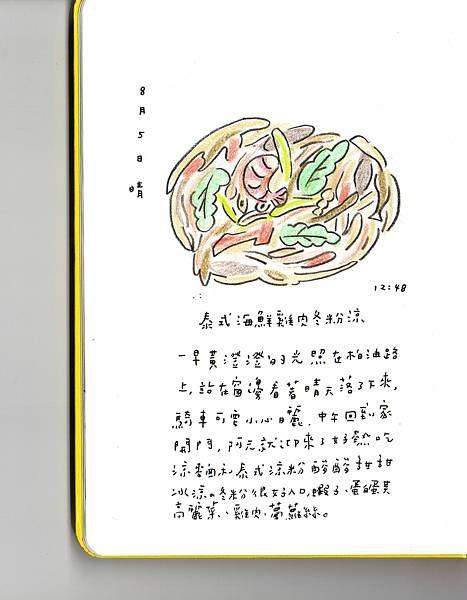 8月5日 晴
12:48
泰式海鮮雞肉冬粉涼
一早黃澄澄日光照在柏油路
上,站在窗邊看著晴天落下來,
騎車可要小心日曬.中午回到家
開門,阿元就來了好熱吃
涼和泰式涼粉酸酸甜甜
冰涼。冬粉很好入口,蝦子、蛋
高麗菜、雞肉、蘿蔔絲。